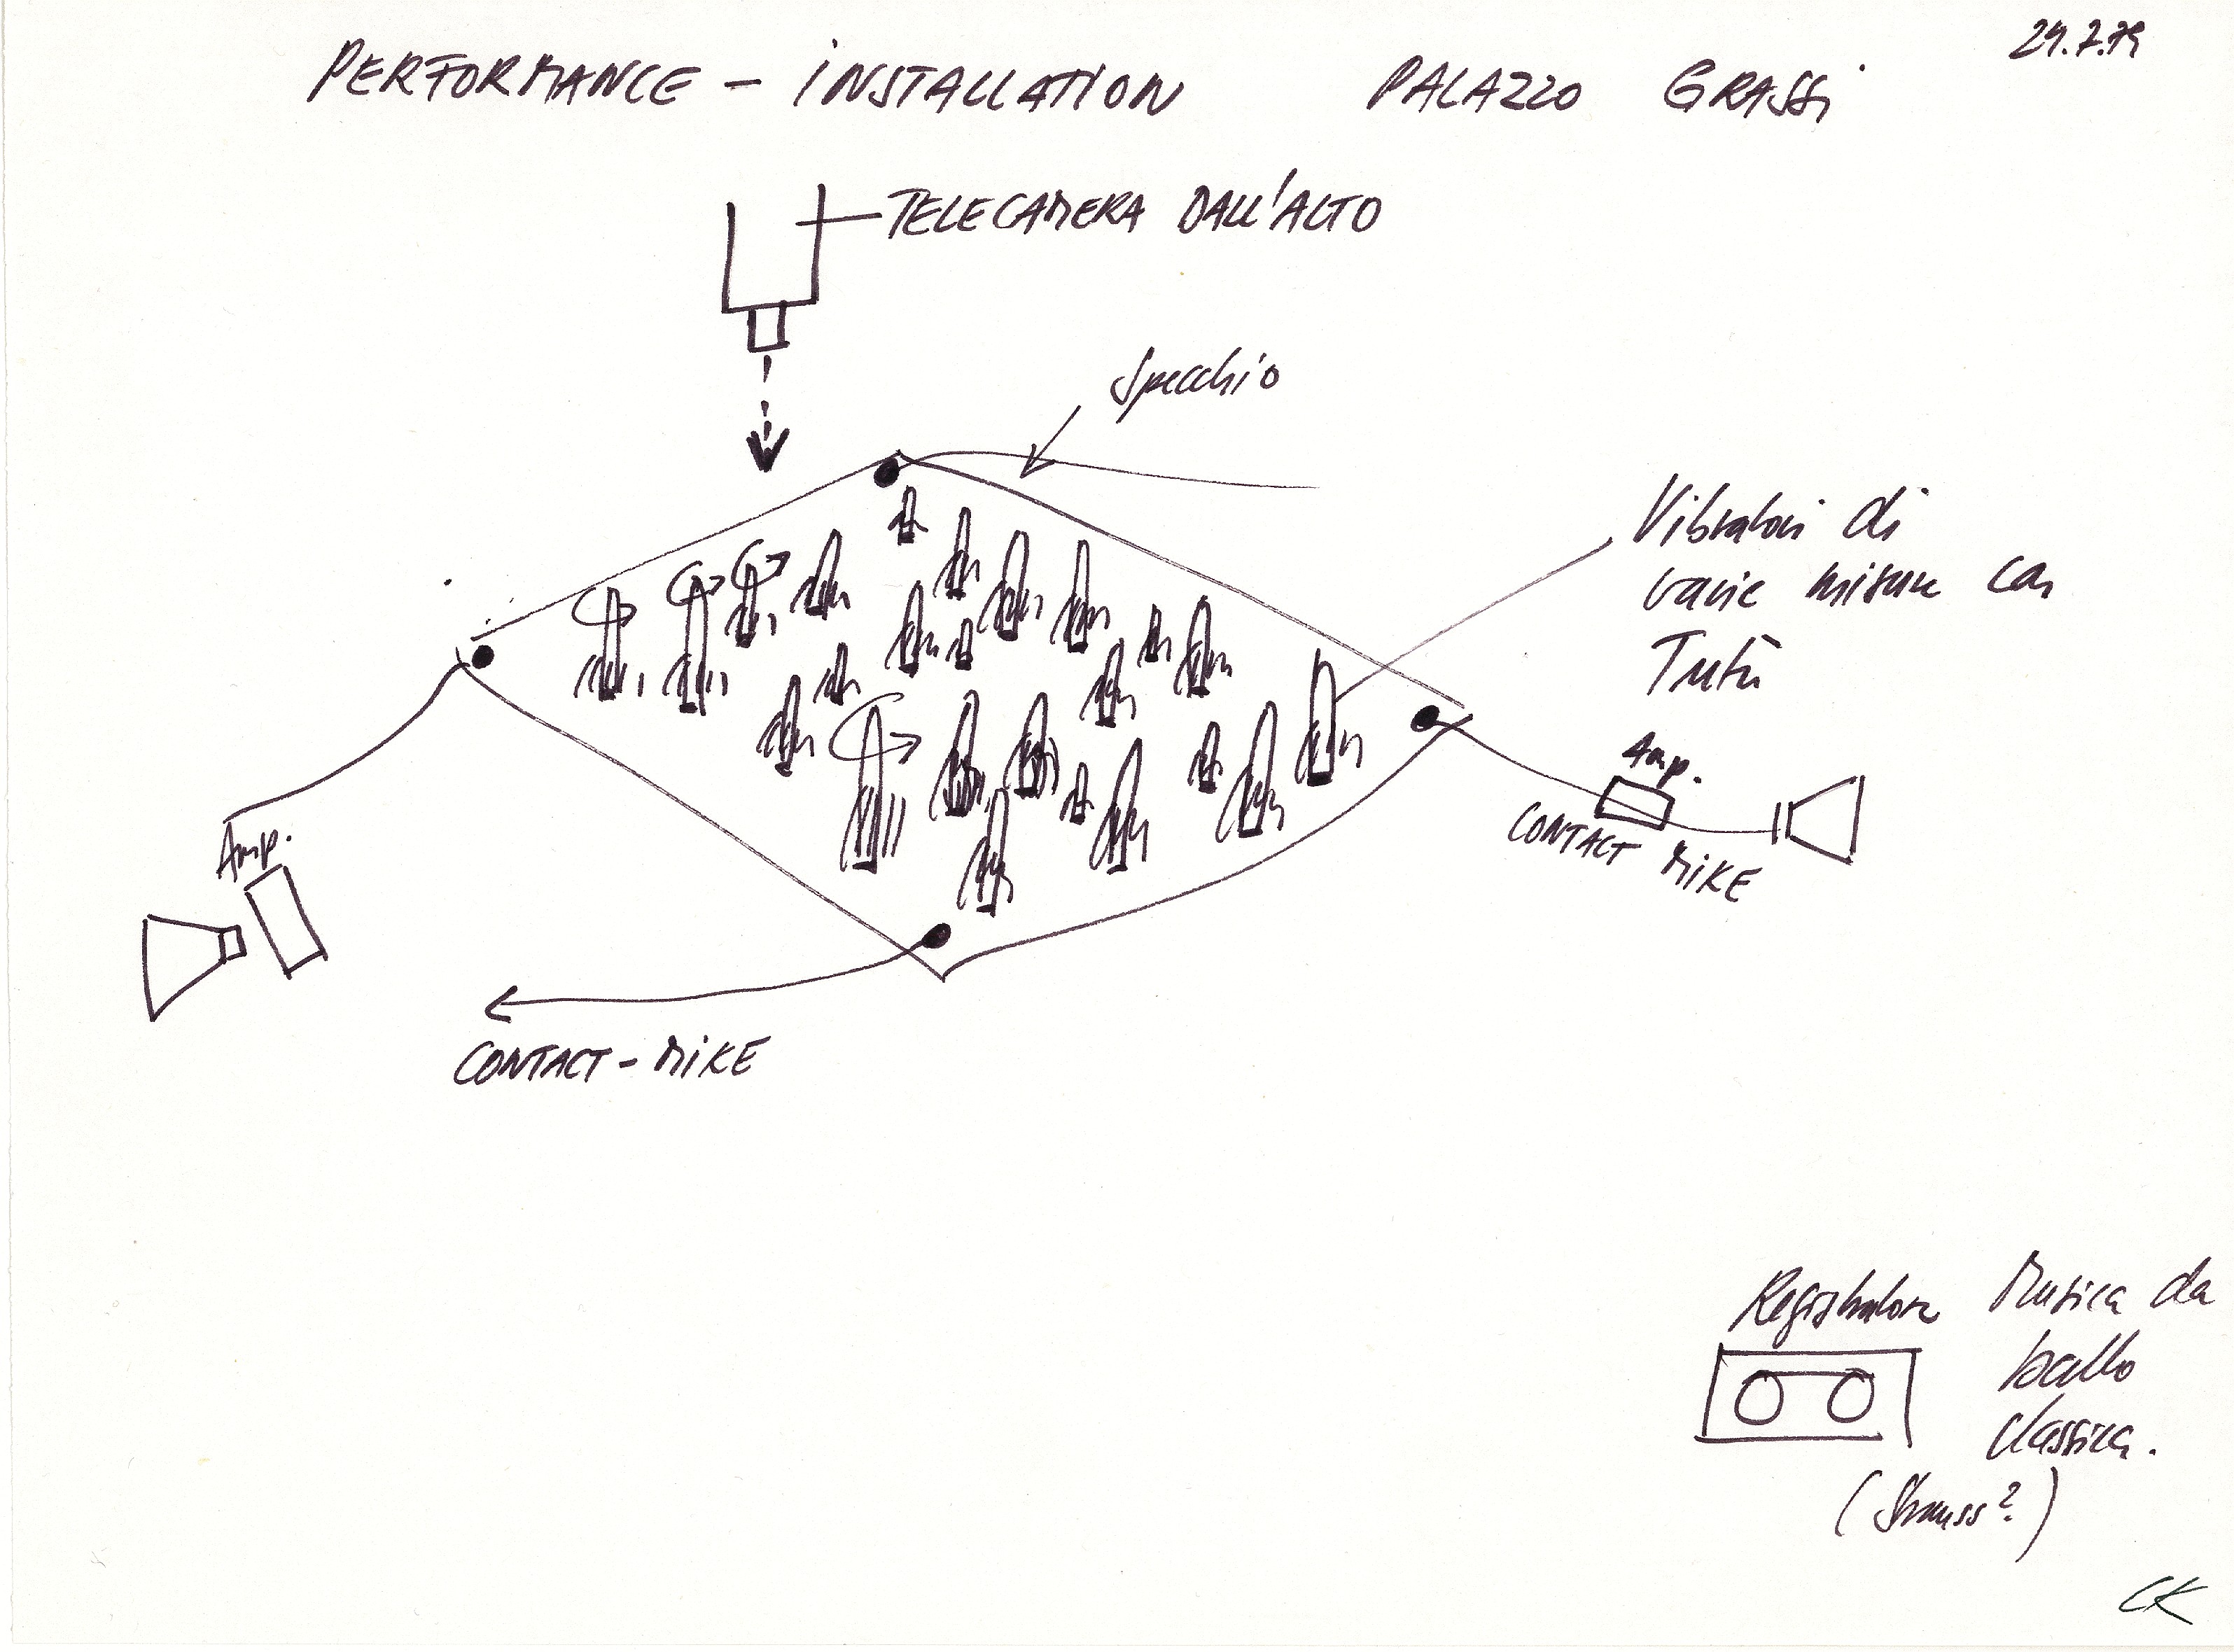 24.7.79
PERFORMANCE – INSTALLATION PALAZZO GRASSI
TELECAMERA DALL'ALTO
Specchio
Vibratori di
varie misure con
Tutù
Amp.
CONTACT MIKE
Amp.
CONTACT-MIKE
Registratore Musica da
ballo
classica.
(Strauss?)
CK